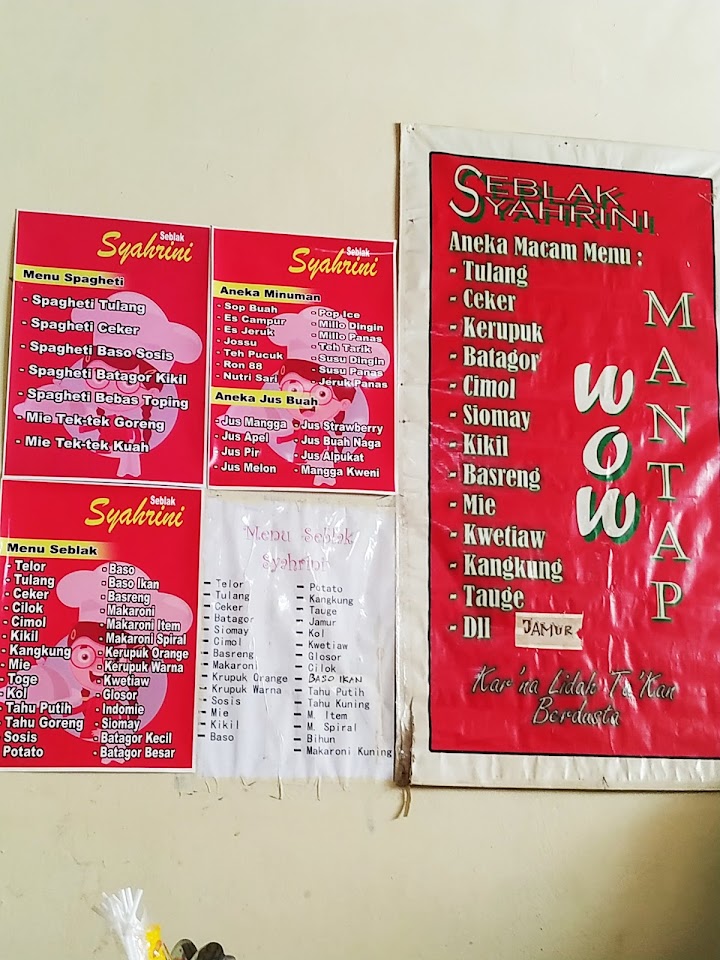 Seblak
Syahrini
Menu Spagheti
- Spagheti Tulang
- Spagheti Ceker
- Spagheti Baso Sosis
- Spagheti Batagor Kikil
- Spagheti Bebas Toping
- Mie Tek-tek Goreng
- Mie Tek-tek Kuah
Seblak
Syahrini
Aneka Minuman
- Sop Buah
- Es Campur
- Es Jeruk
- Jossu
- Teh Pucuk
- Ron 88
- Nutri Sari
- Pop Ice
- Millo Dingin
- Millo Panas
- Teh Tarik
- Susu Dingin
- Susu Panas
- Jeruk Panas
Aneka Jus Buah
- Jus Mangga
- Jus Apel
- Jus Pir
- Jus Melon
- Jus Strawberry
- Jus Buah Naga
- Jus Alpukat
- Mangga Kweni
Seblak
Syahrini
Menu Seblak
- Telor
- Tulang
- Ceker
- Cilok
- Cimol
- Kikil
- Kangkung
- Mie
- Toge
- Kol
- Tahu Putih
- Tahu Goreng
- Sosis
Potato
- Baso
- Baso Ikan
- Basreng
- Makaroni
- Makaroni Item
- Makaroni Spiral
- Kerupuk Orange
- Kerupuk Warna
- Kwetiaw
- Glosor
- Indomie
- Siomay
- Batagor Kecil
- Batagor Besar
Menu Seblak
Syahrini
- Telor
- Tulang
- Ceker
- Batagor
- Siomay
- Cimol
- Basreng
- Makaroni
- Krupuk Orange
- Krupuk Warna
- Sosis
- Mie
- Kikil
- Baso
- Potato
- Kangkung
- Tauge
- Jamur
- Kol
- Kwetiaw
- Glosor
- Cilok
- BASO IKAN
- Tahu Putih
- Tahu Kuning
- M. Item
- M. Spiral
- Bihun
- Makaroni Kuning
SEBLAK
SYAHRINI
Aneka Macam Menu :
- Tulang
- Ceker
- Kerupuk
- Batagor
- Cimol
- Siomay
- Kikil
- Basreng
- Mie
- Kwetiaw
- Kangkung
- Tauge
- Dll
JAMUR
WOW
MANTAP
Kar'na Lidah Ta'Kan
Berdusta